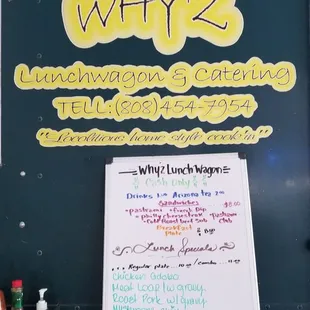 WHY'Z
Lunchwagon & Catering
TELL:(808)454-7954
"Localitious home style cook'in"
Why'z Lunch Wagon
Cash Only
Drinks 1.00 Arizona tea 2.00
Sandwiches $8.00
• Pastrami • French Dip
• Philly cheesesteak • Pastrami
• Cold Roast Beef Sub Club
Breakfast
Plate
Lunch Specials
Regular plate
Chicken Adobo
Meat Loaf w/ gravy
Roast Pork w/ gravy